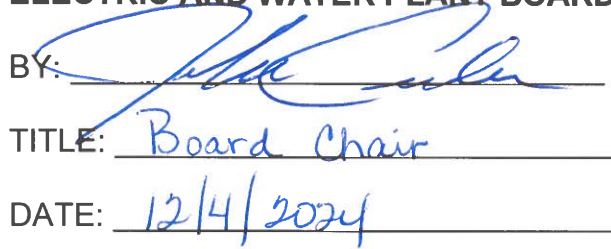 ELECTRIC AND WATER PLANT BOARD
BY:
TITLE: Board Chair
DATE: 12/4/2024